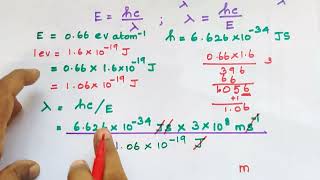 E = hc/λ ; λ = hc/E
E = 0.66 ev atom⁻¹
h = 6.626 × 10⁻³⁴ JS
1ev = 1.6 × 10⁻¹⁹ J
= 0.66 × 1.6 × 10⁻¹⁹ J
= 1.06 × 10⁻¹⁹ J
0.66 × 1.6
3
396
66
1056
+1
1.06
λ = hc/E
= 6.626 × 10⁻³⁴ Js × 3 × 10⁸ ms⁻¹
1.06 × 10⁻¹⁹ J
m